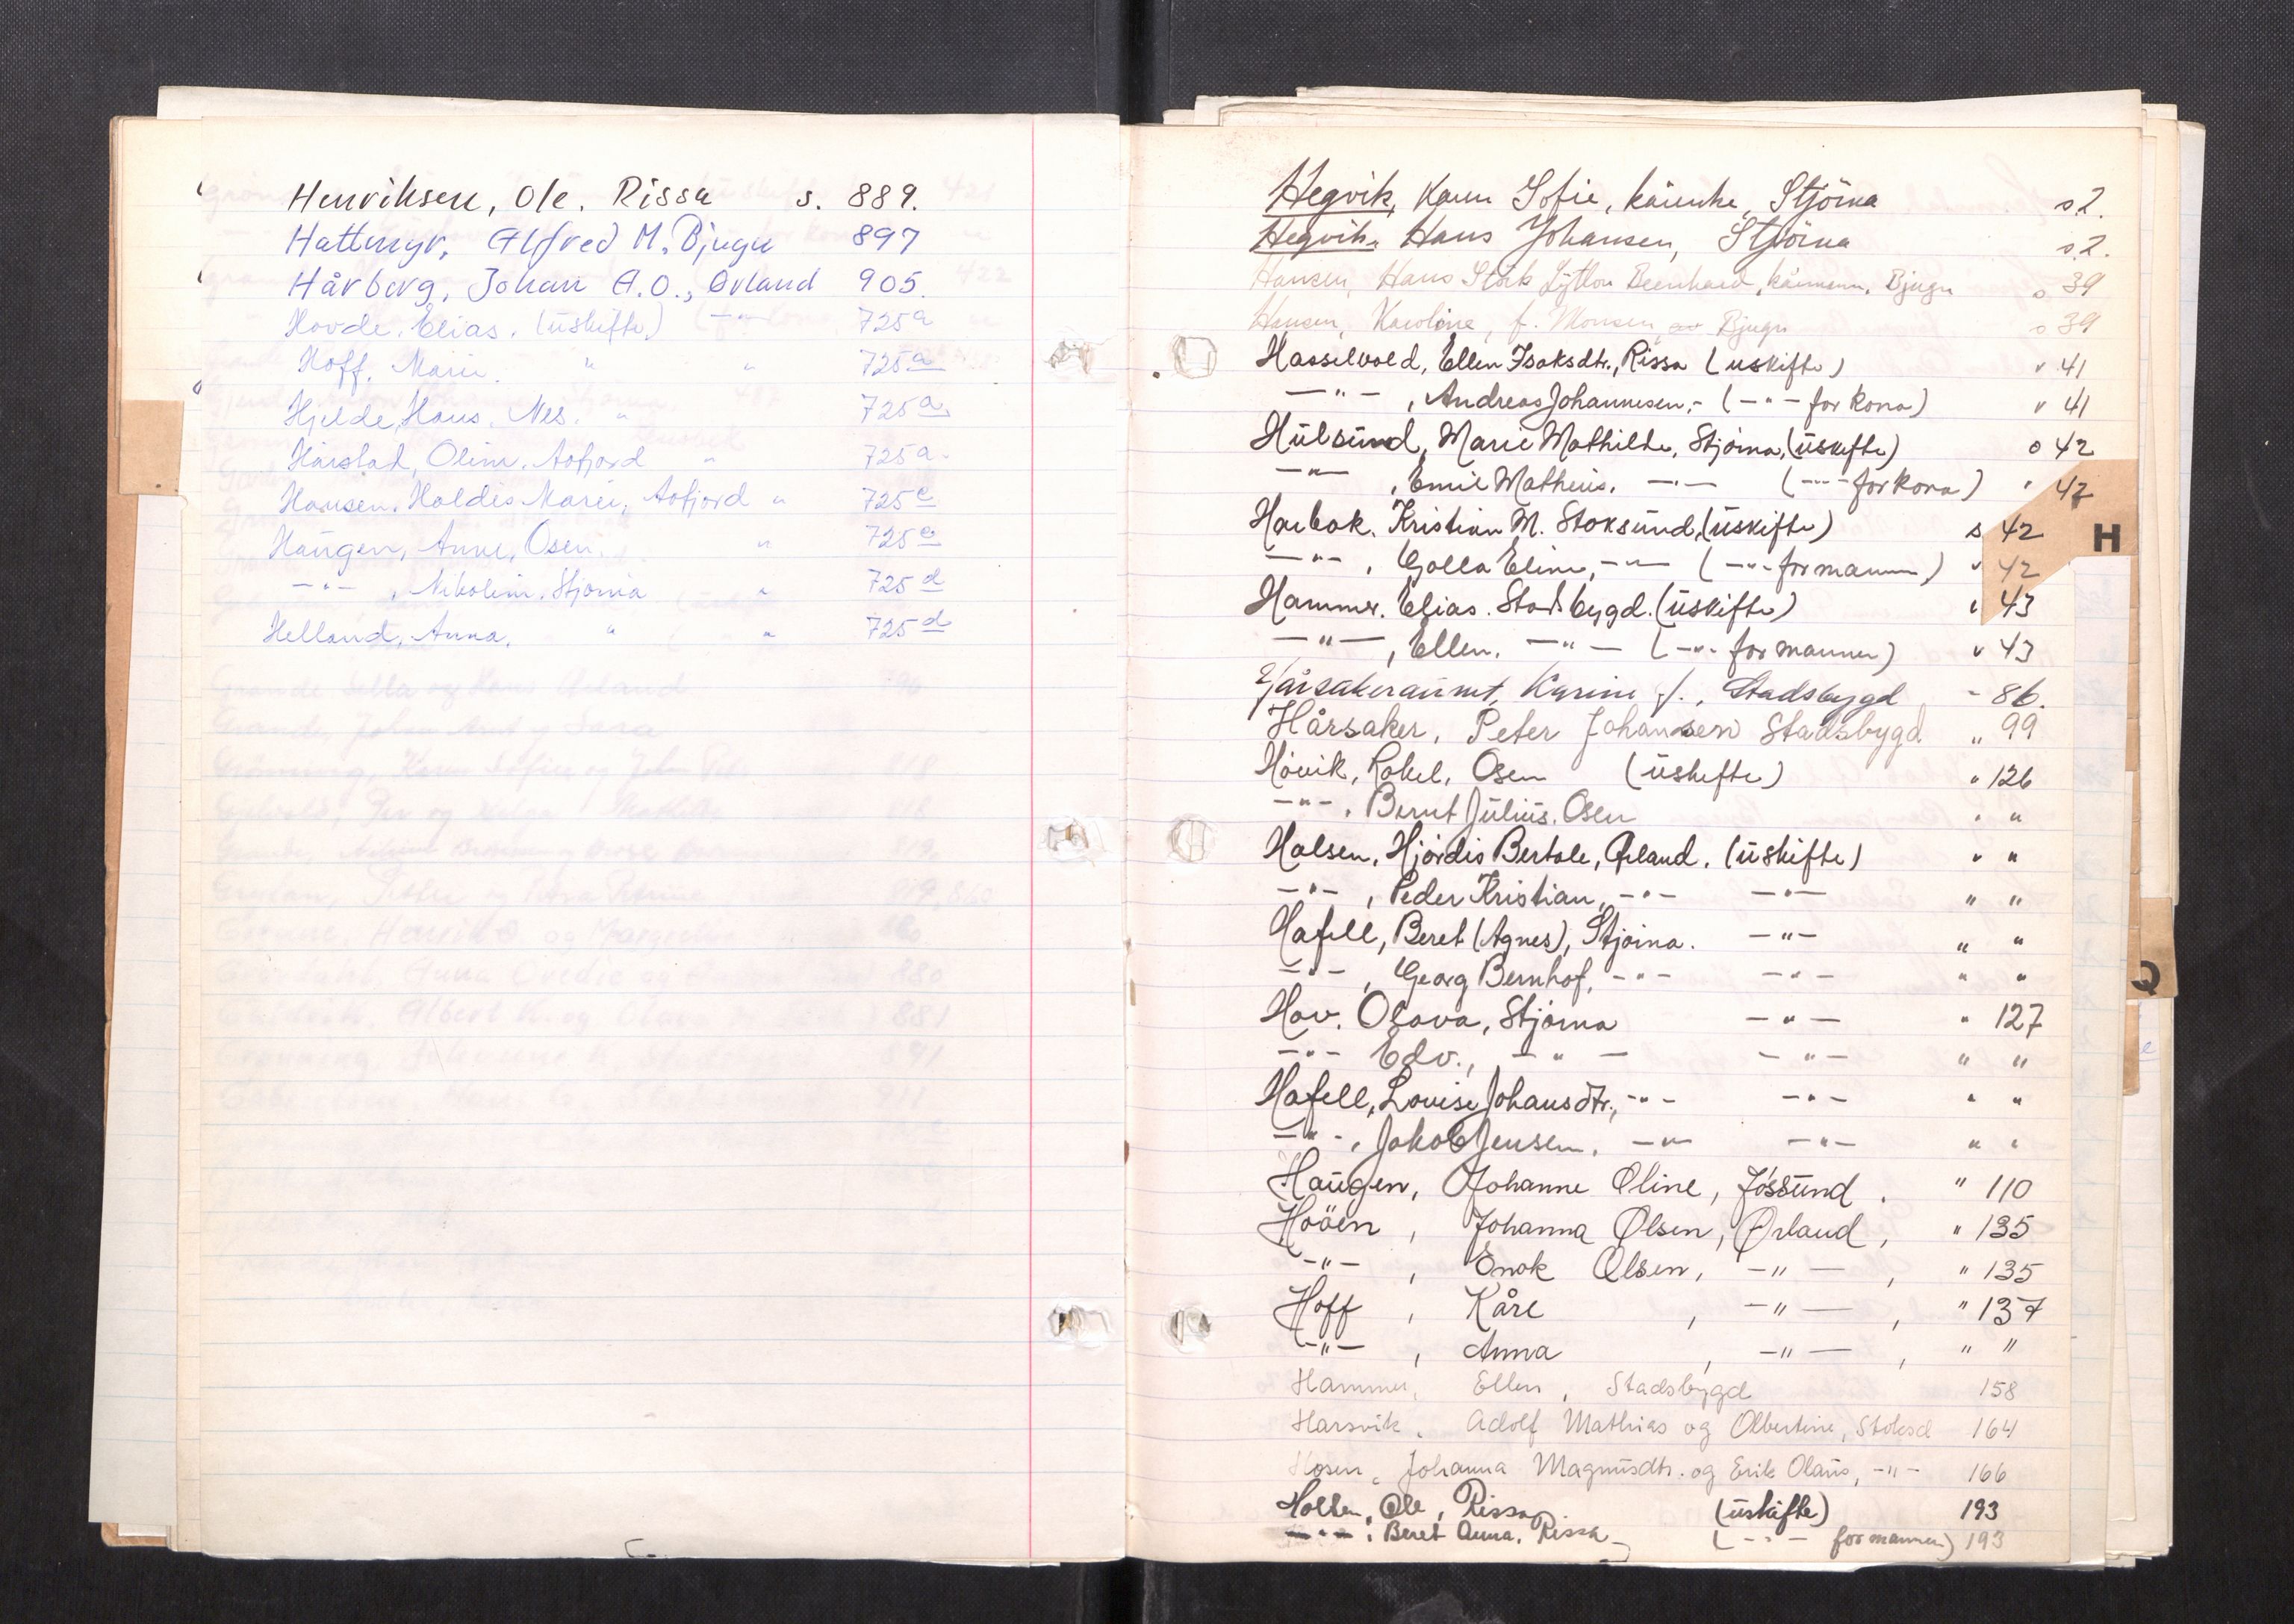 Henriksen, Ole. Rissa s. 889.
Hattmyr, Alfred M. Bjugn 897
Hårberg, Johan A.O., Ørland 905.
Hovde, Elias. (uskifte) -"- 725a
Hoff, Marie. " " 725a
Hjelde, Hans. Nes. " 725a
Hårstad, Oline. Åfjord " 725a.
Hansen, Haldis Marie, Åfjord " 725c
Haugen, Anne, Osen. " 725c
-"- , Nikoline, Stjørna " 725d
Helland, Anna. " " 725d
Hegvik, Karen Sofie, kårenke, Stjörna s.2.
Hegvik, Hans Johansen, Stjörna s.2.
Hansen, Hans Stork Lytton Bernhard, kårmann, Bjugn s 39
Hansen, Karoline, f. Monsen Bjugn s 39
Hasselvold, Ellen Isaksdtr., Rissa (uskifte) " 41
-"- , Andreas Johannesen, - (-"- for kona) " 41
Hulsund, Marie Mathilde, Stjørna, (uskifte) s 42
-"- , Emil Matheus, -"- (-"- for kona) " 42
Harbak, Kristian M. Stoksund, (uskifte) s 42
-"- , Golla Eline, -"- (-"- for mannen) " 42
Hammer, Elias. Stadsbygd. (uskifte) " 43
-"- , Ellen. -"- (-"- for mannen) " 43
Hårsakeraunet, Karine J., Stadsbygd - 86.
Hårsaker, Peter Johansen Stadsbygd " 99
Høvik, Rakel, Osen (uskifte) " 126
-"- , Bernt Julius, Osen " "
Halsen, Hjørdis Bertole, Ørland. (uskifte) " "
-"- , Peder Kristian, -"- -"- " "
Hafell, Beret (Agnes), Stjørna. -"- " "
-"- , Georg Bernhof, -"- -"- " "
Hov, Olava, Stjørna -"- " 127
-"- Edv., -"- -"- " "
Hafell, Lovise Johansdtr., -"- -"- " "
-"- , Jakob Jensen, -"- -"- " "
Haugen, Johanne Oline, Jössund. " 110
Hoöen, Johanna Olsen, Ørland, " 135
-"- , Enok Olsen, -"- , " 135
Hoff, Kåre , -"- , " 137
-"- , Anna , -"- , " "
Hammer, Ellen, Stadsbygd 158
Harsvik, Adolf Mathias og Olbertine, Stoksd 164
Hosen, Johanna Magnusdtr. og Erik Olaus, -"- 166
Holten, Ole, Rissa (uskifte) 193
-"- , Beret Anna, Rissa (-"- for mannen) 193
H
Q